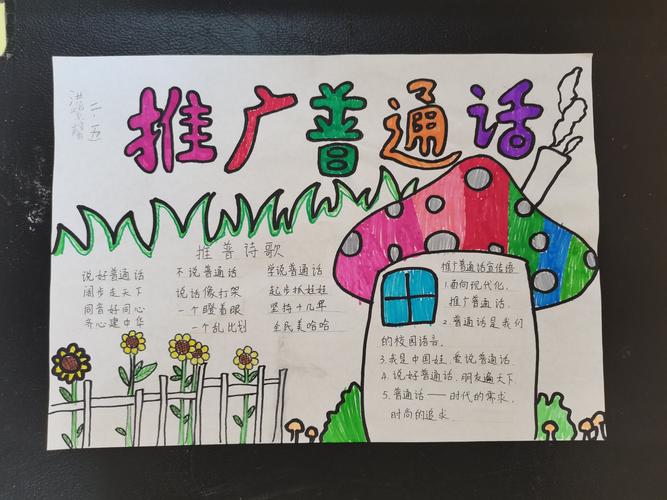 二.五
推广普通话
推普诗歌
说好普通话
阔步走天下
同音好同心
齐心建中华
不说普通话
说话像打架
一个瞪着眼
一个乱比划
学说普通话
起步抓娃娃
坚持十几年
全民美哈哈
推广普通话宣传语
1.面向现代化,
推广普通话.
2.普通话是我们
的校园语言。
3.我是中国娃,爱说普通话
4.说好普通话,朋友遍天下.
5.普通话——时代的需求,
时尚的追求.